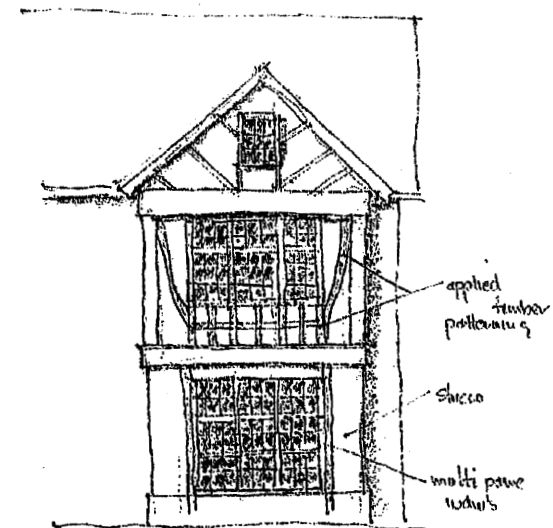 applied
timber
patterning
Stucco
multi pane